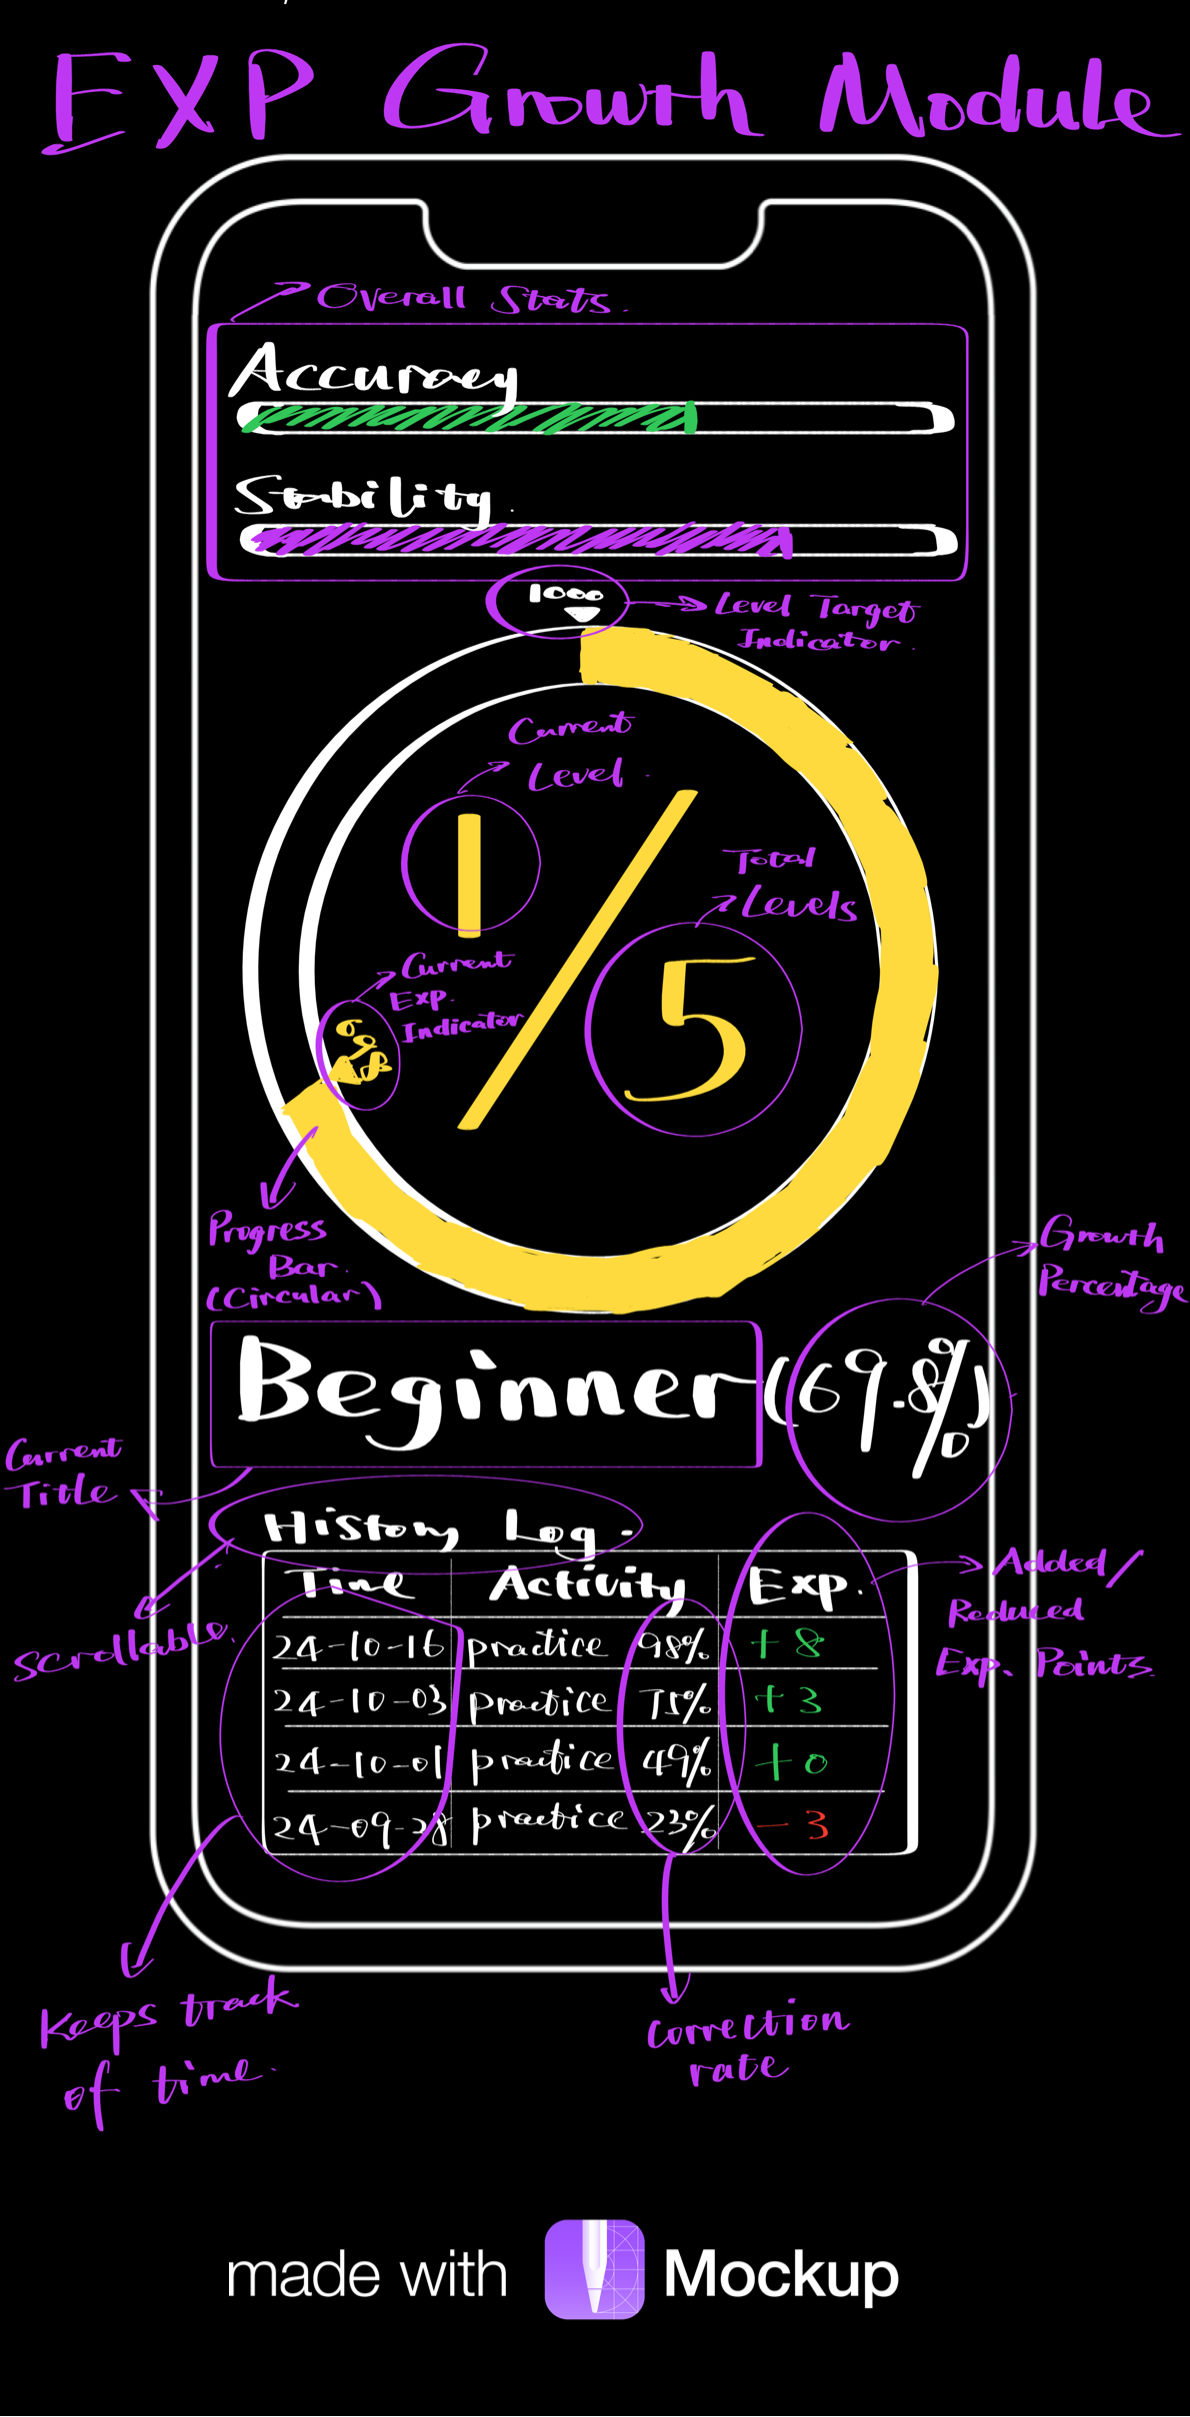 EXP Growth Module
Overall Stats.
Accuracy
Stability.
1000
Level Target
Indicator.
Current
Level.
1/5
Total
Levels
Current
Exp.
Indicator
698
Progress
Bar.
(Circular)
Growth
Percentage
Beginner (69.8%)
Current
Title
History Log.
Scrollable.
Time Activity Exp.
24-10-16 practice 98% +8
24-10-03 practice 75% +3
24-10-01 practice 49% +0
24-09-28 practice 23% -3
Added/
Reduced
Exp. Points.
Keeps track
of time.
Correction
rate
made with Mockup